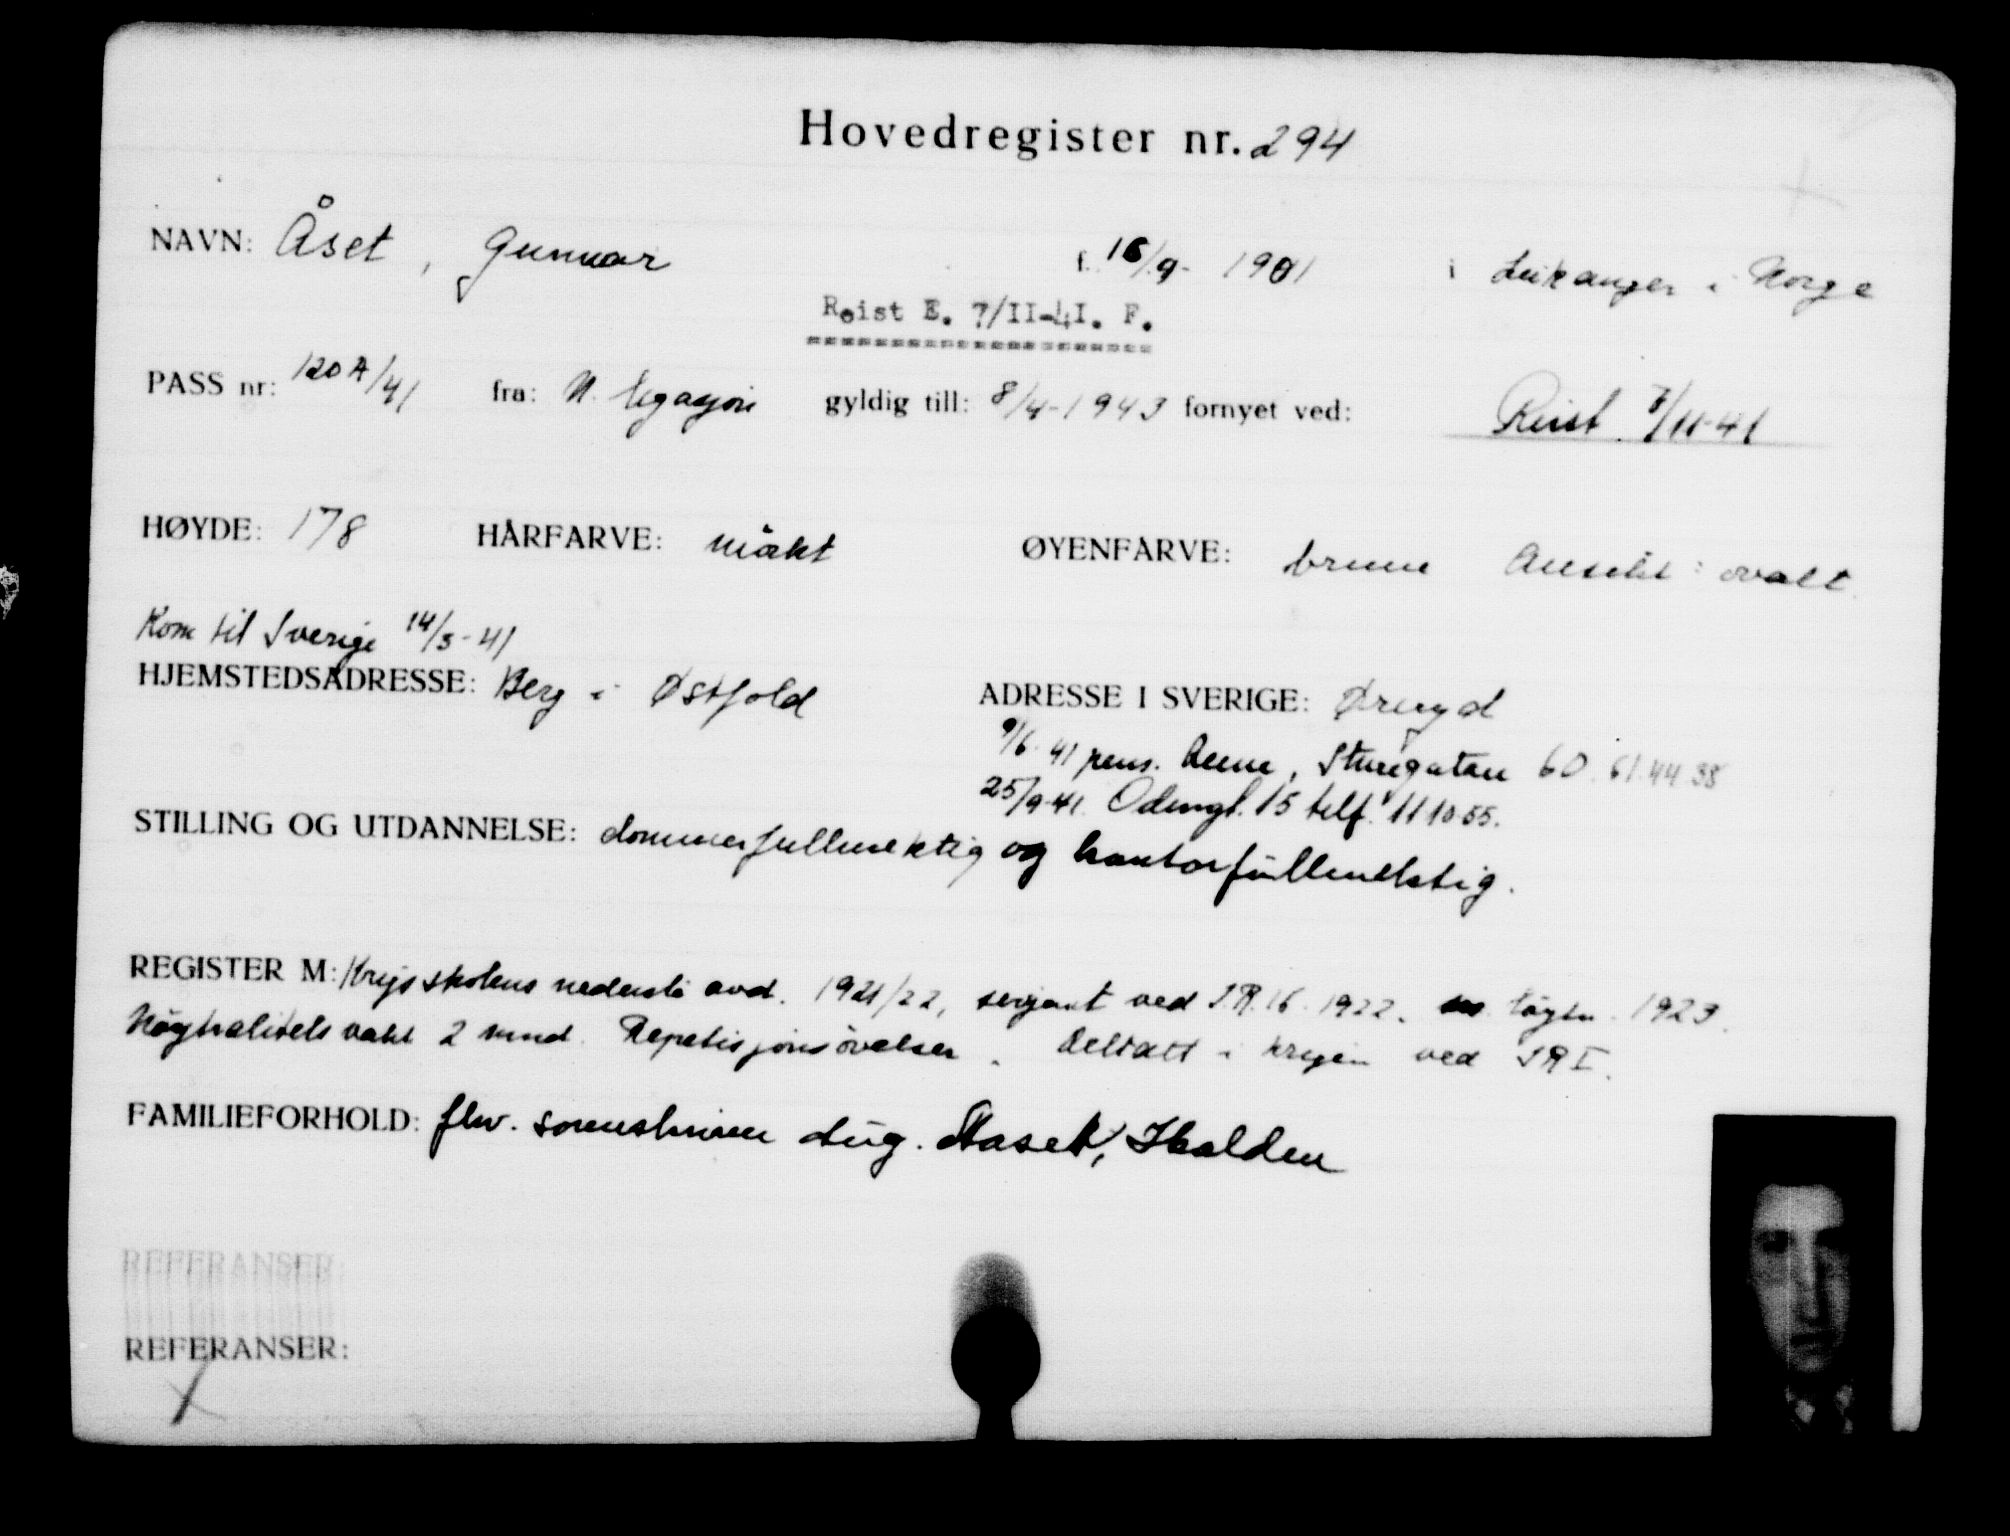 Hovedregister nr. 294
NAVN: Åset, Gunnar f. 16/9- 1901 i Leikanger i Norge
Reist E. 7/II-4I. F.
PASS nr: 120A/41 fra: N. legasjon gyldig till: 8/4-1943 fornyet ved: Reist 7/11-41
HØYDE: 178 HÅRFARVE: mørkt ØYENFARVE: brune Ansikt: ovalt
Kom til Sverige 14/3-41
HJEMSTEDSADRESSE: Berg i Østfold ADRESSE I SVERIGE: Øreryd
9/6-41 pens. Sturegatan 60. 61.44.38
25/9-41. Odengt. 15 telf. 11 10 55.
STILLING OG UTDANNELSE: dommerfullmektig og kontorfullmektig.
REGISTER M: Krigsskolens nederste avd. 1921/22, sersjant ved I.R.16. 1922. løytn. 1923.
Nøytralitets vakt 2 mnd. Repetisjonsøvelser. Deltatt i krigen ved IR I.
FAMILIEFORHOLD: fhv. sorenskriver Aug. Aaset, Halden
REFERANSER:
REFERANSER: